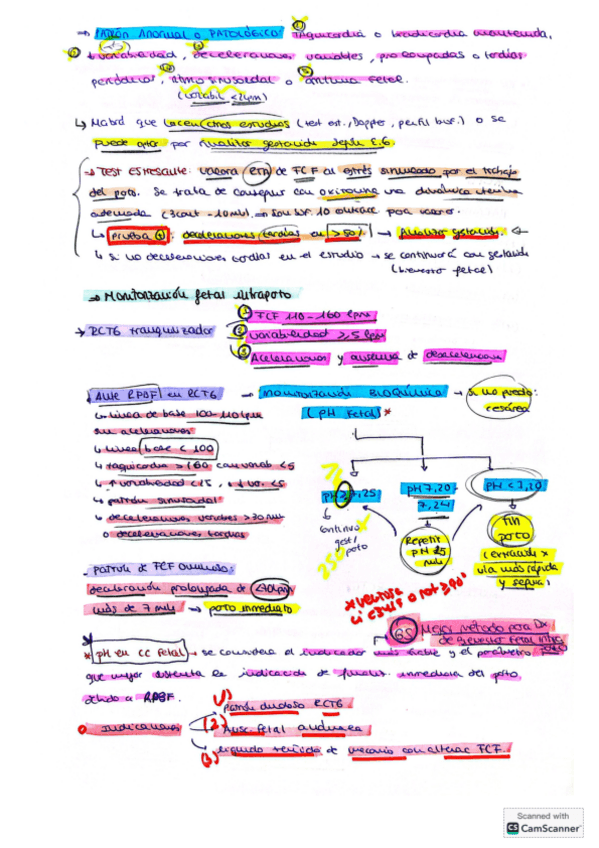 → Patrón Anormal o PATOLÓGICO: ① Taquicardia o bradicardia mantenida,
② ↓ variabilidad, ③ deceleraciones variables, prolongadas o tardías
periódicas, ④ ritmo sinusoidal o ⑤ arritmia fetal.
(variabil <
↳ Habrá que hacer otros estudios (test est., Doppler, perfil biof.) o se
puede optar por finalizar gestación según E.G.
→ Test estresante: valora rta de FCF al estrés simulado por el trabajo
del parto. Se trata de conseguir con oxitocina una dinámica uterina
adecuada (3cont - 10min). 10 para valorar.
↳ prueba ⊕: deceleraciones tardías en >50% → finalizar gestación.
↳ si no deceleraciones tardías en el estudio → se continuará con gestación
(bienestar fetal)
⇒ Monitorización fetal intraparto
→ RCTG tranquilizador
① FCF 110-160 lpm
② variabilidad ≥5 lpm
③ Aceleraciones y ausencia de desaceleraciones
Ante RPBF en RCTG → Monitorización Bioquímica → si no puedo:
(pH Fetal)* cesárea
↳ línea de base 100-110 lpm
sin aceleraciones
↳ línea base < 100
↳ taquicardia >160 con variab <5
↳ patrón sinusoidal
↳ deceleraciones variables >30 min
o deceleraciones tardías
pH ≥7,25
pH 7,20-
7,24
pH < 7,20
continúo
gest/
parto
Repetir
pH 15
min
Fin
parto
(extracción x
vía más rápida
y segura)
* ventosa
ci <34sf o rot ≥90º
- Patrón de FCF ominoso:
deceleración prolongada de <70lpm
más de 7 min → parto inmediato
GS Mejor método para Dx
de bienestar fetal intra
parto
* pH en CC fetal → se considera el indicador más fiable y el parámetro
que mejor sustenta la indicación de finaliz. inmediata del parto
debido a RPBF.
o Indicaciones
(1) Patrón dudoso RCTG
(2) Ausc. fetal anómala
(3) líquido teñido de meconio con alterac FCF.
Scanned with
CS CamScanner